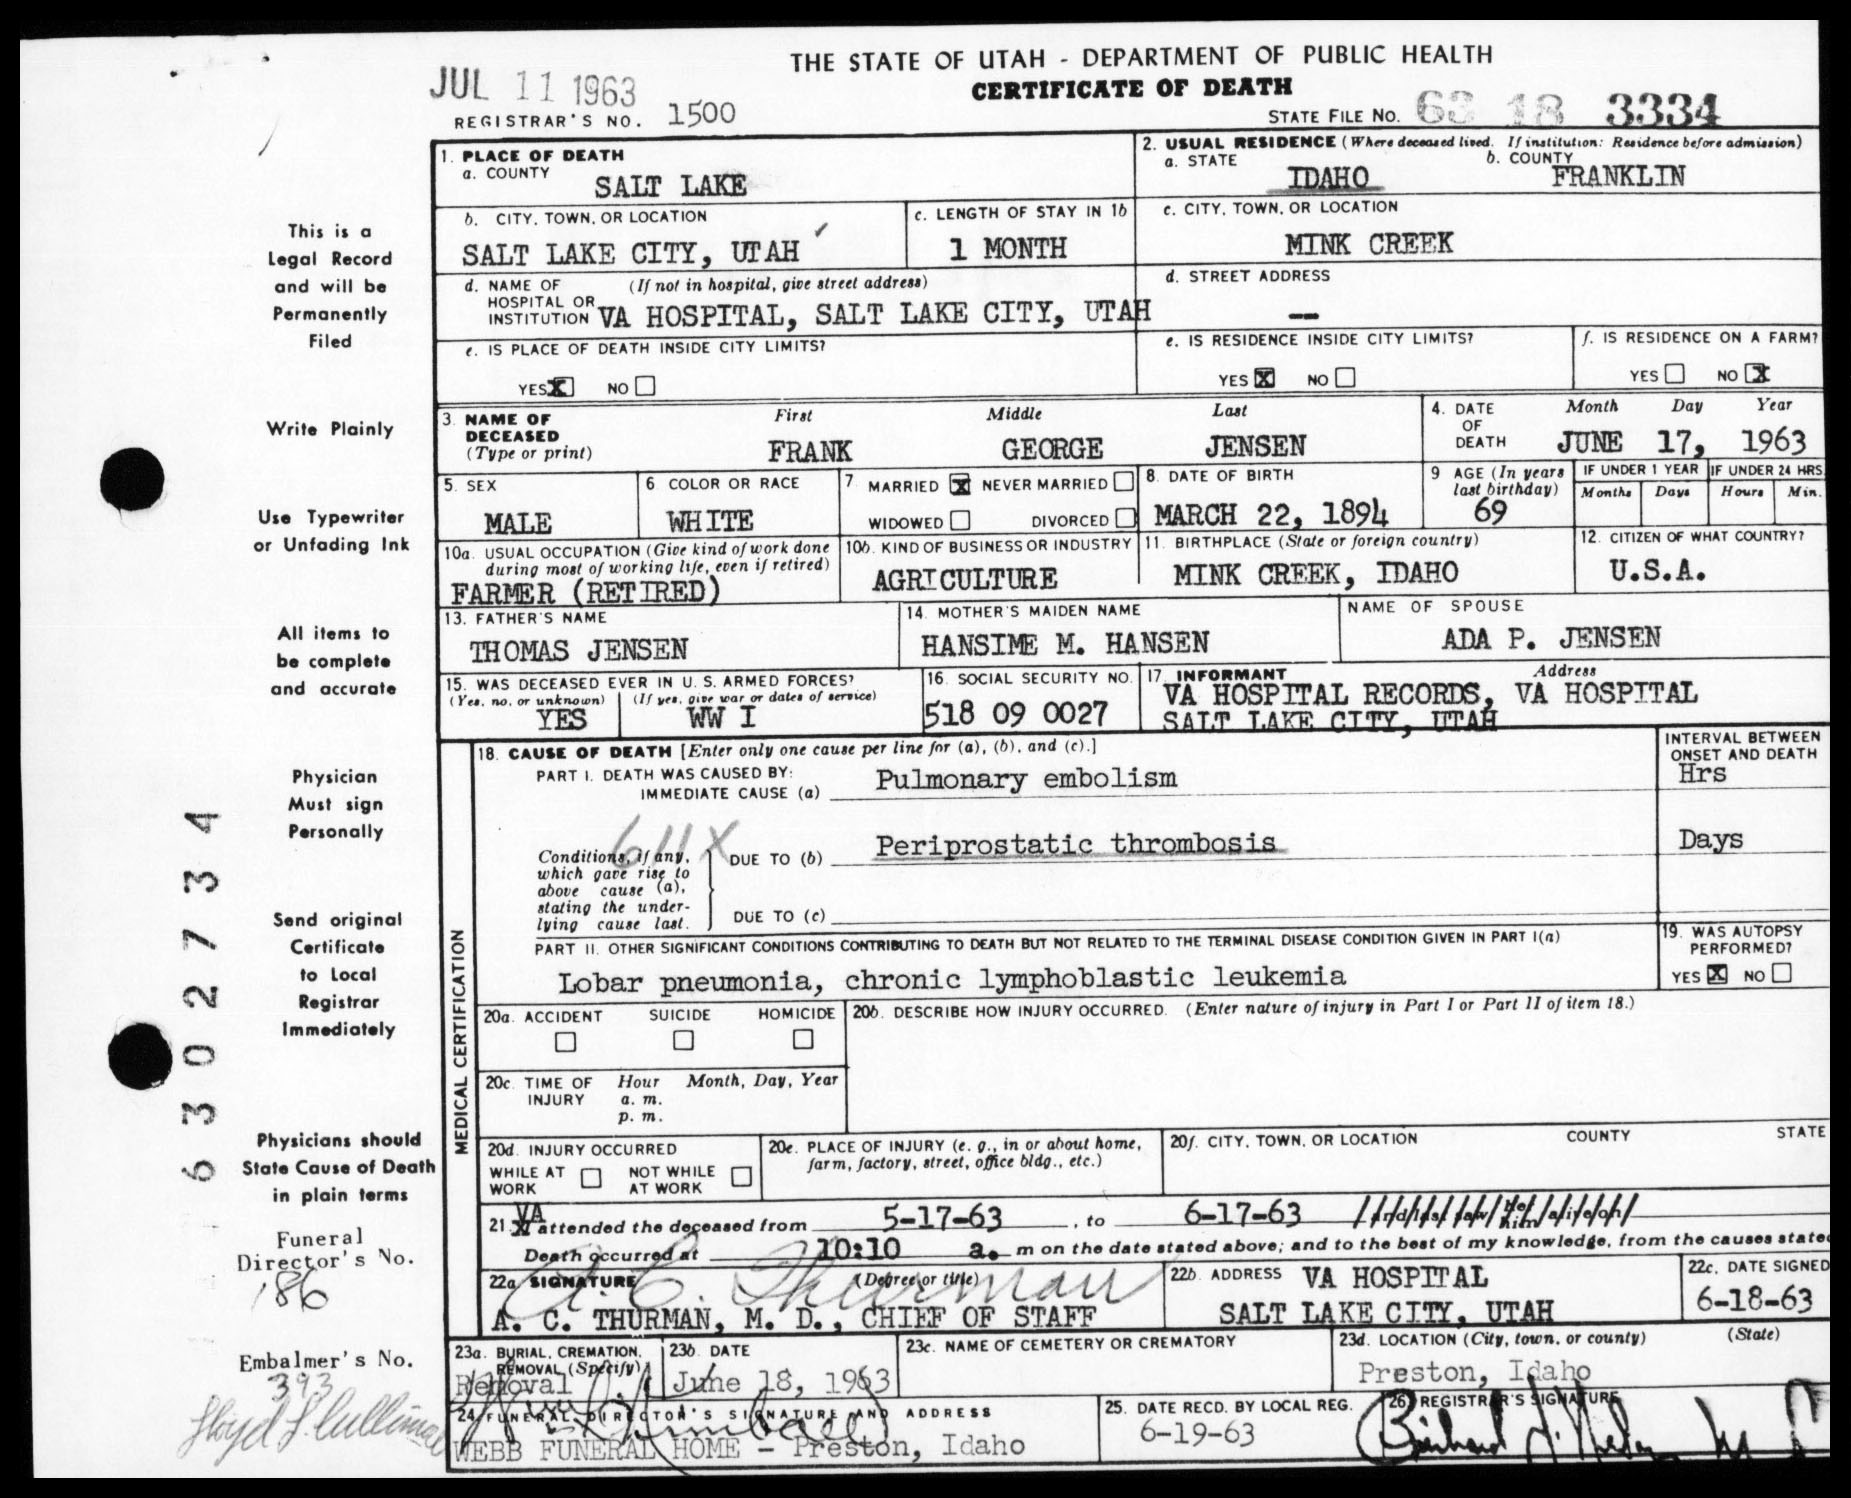 THE STATE OF UTAH - DEPARTMENT OF PUBLIC HEALTH
JUL 11 1963
CERTIFICATE OF DEATH
REGISTRAR'S NO. 1500
STATE FILE NO. 63 18 3334
1. PLACE OF DEATH
a. COUNTY
SALT LAKE
2. USUAL RESIDENCE (Where deceased lived. If institution: Residence before admission)
a. STATE
IDAHO
b. COUNTY
FRANKLIN
b. CITY, TOWN, OR LOCATION
SALT LAKE CITY, UTAH
c. LENGTH OF STAY IN 1b
1 MONTH
c. CITY, TOWN, OR LOCATION
MINK CREEK
d. NAME OF HOSPITAL OR INSTITUTION
(If not in hospital, give street address)
VA HOSPITAL, SALT LAKE CITY, UTAH
d. STREET ADDRESS
--
e. IS PLACE OF DEATH INSIDE CITY LIMITS?
YES X NO
e. IS RESIDENCE INSIDE CITY LIMITS?
YES X NO
f. IS RESIDENCE ON A FARM?
YES NO X
3. NAME OF DECEASED
(Type or print)
First Middle Last
FRANK GEORGE JENSEN
4. DATE OF DEATH
Month Day Year
JUNE 17, 1963
5. SEX
MALE
6 COLOR OR RACE
WHITE
7. MARRIED X NEVER MARRIED
WIDOWED DIVORCED
8. DATE OF BIRTH
MARCH 22, 1894
9 AGE (In years last birthday)
69
IF UNDER 1 YEAR
Months Days
IF UNDER 24 HRS.
Hours Min.
10a. USUAL OCCUPATION (Give kind of work done during most of working life, even if retired)
FARMER (RETIRED)
10b. KIND OF BUSINESS OR INDUSTRY
AGRICULTURE
11. BIRTHPLACE (State or foreign country)
MINK CREEK, IDAHO
12. CITIZEN OF WHAT COUNTRY?
U.S.A.
13. FATHER'S NAME
THOMAS JENSEN
14. MOTHER'S MAIDEN NAME
HANSIME M. HANSEN
NAME OF SPOUSE
ADA P. JENSEN
15. WAS DECEASED EVER IN U. S. ARMED FORCES?
(Yes, no, or unknown) (If yes, give war or dates of service)
YES WW I
16. SOCIAL SECURITY NO.
518 09 0027
17. INFORMANT Address
VA HOSPITAL RECORDS, VA HOSPITAL
SALT LAKE CITY, UTAH
MEDICAL CERTIFICATION
18. CAUSE OF DEATH [Enter only one cause per line for (a), (b), and (c).]
INTERVAL BETWEEN ONSET AND DEATH
PART I. DEATH WAS CAUSED BY:
IMMEDIATE CAUSE (a) Pulmonary embolism
Hrs
611X
Conditions, if any, which gave rise to above cause (a), stating the underlying cause last.
DUE TO (b) Periprostatic thrombosis
Days
DUE TO (c)
PART II. OTHER SIGNIFICANT CONDITIONS CONTRIBUTING TO DEATH BUT NOT RELATED TO THE TERMINAL DISEASE CONDITION GIVEN IN PART I(a)
Lobar pneumonia, chronic lymphoblastic leukemia
19. WAS AUTOPSY PERFORMED?
YES X NO
20a. ACCIDENT SUICIDE HOMICIDE
20b. DESCRIBE HOW INJURY OCCURRED. (Enter nature of injury in Part I or Part II of item 18.)
20c. TIME OF INJURY
Hour Month, Day, Year
a. m.
p. m.
20d. INJURY OCCURRED
WHILE AT WORK NOT WHILE AT WORK
20e. PLACE OF INJURY (e. g., in or about home, farm, factory, street, office bldg., etc.)
20f. CITY, TOWN, OR LOCATION COUNTY STATE
21. VA attended the deceased from 5-17-63, to 6-17-63 and last saw he him alive on
Death occurred at 10:10 a. m on the date stated above; and to the best of my knowledge, from the causes stated
22a. SIGNATURE (Degree or title)
A C Thurman
A. C. THURMAN, M. D., CHIEF OF STAFF
22b. ADDRESS VA HOSPITAL
SALT LAKE CITY, UTAH
22c. DATE SIGNED
6-18-63
23a. BURIAL, CREMATION, REMOVAL (Specify)
Removal
23b. DATE
June 18, 1963
23c. NAME OF CEMETERY OR CREMATORY
23d. LOCATION (City, town, or county) (State)
Preston, Idaho
24. FUNERAL DIRECTOR'S SIGNATURE AND ADDRESS
WEBB FUNERAL HOME - Preston, Idaho
25. DATE RECD. BY LOCAL REG.
6-19-63
26. REGISTRAR'S SIGNATURE
This is a
Legal Record
and will be
Permanently
Filed
Write Plainly
Use Typewriter
or Unfading Ink
All items to
be complete
and accurate
Physician
Must sign
Personally
Send original
Certificate
to Local
Registrar
Immediately
Physicians should
State Cause of Death
in plain terms
Funeral
Director's No.
186
Embalmer's No.
393
6 3 0 2 7 3 4